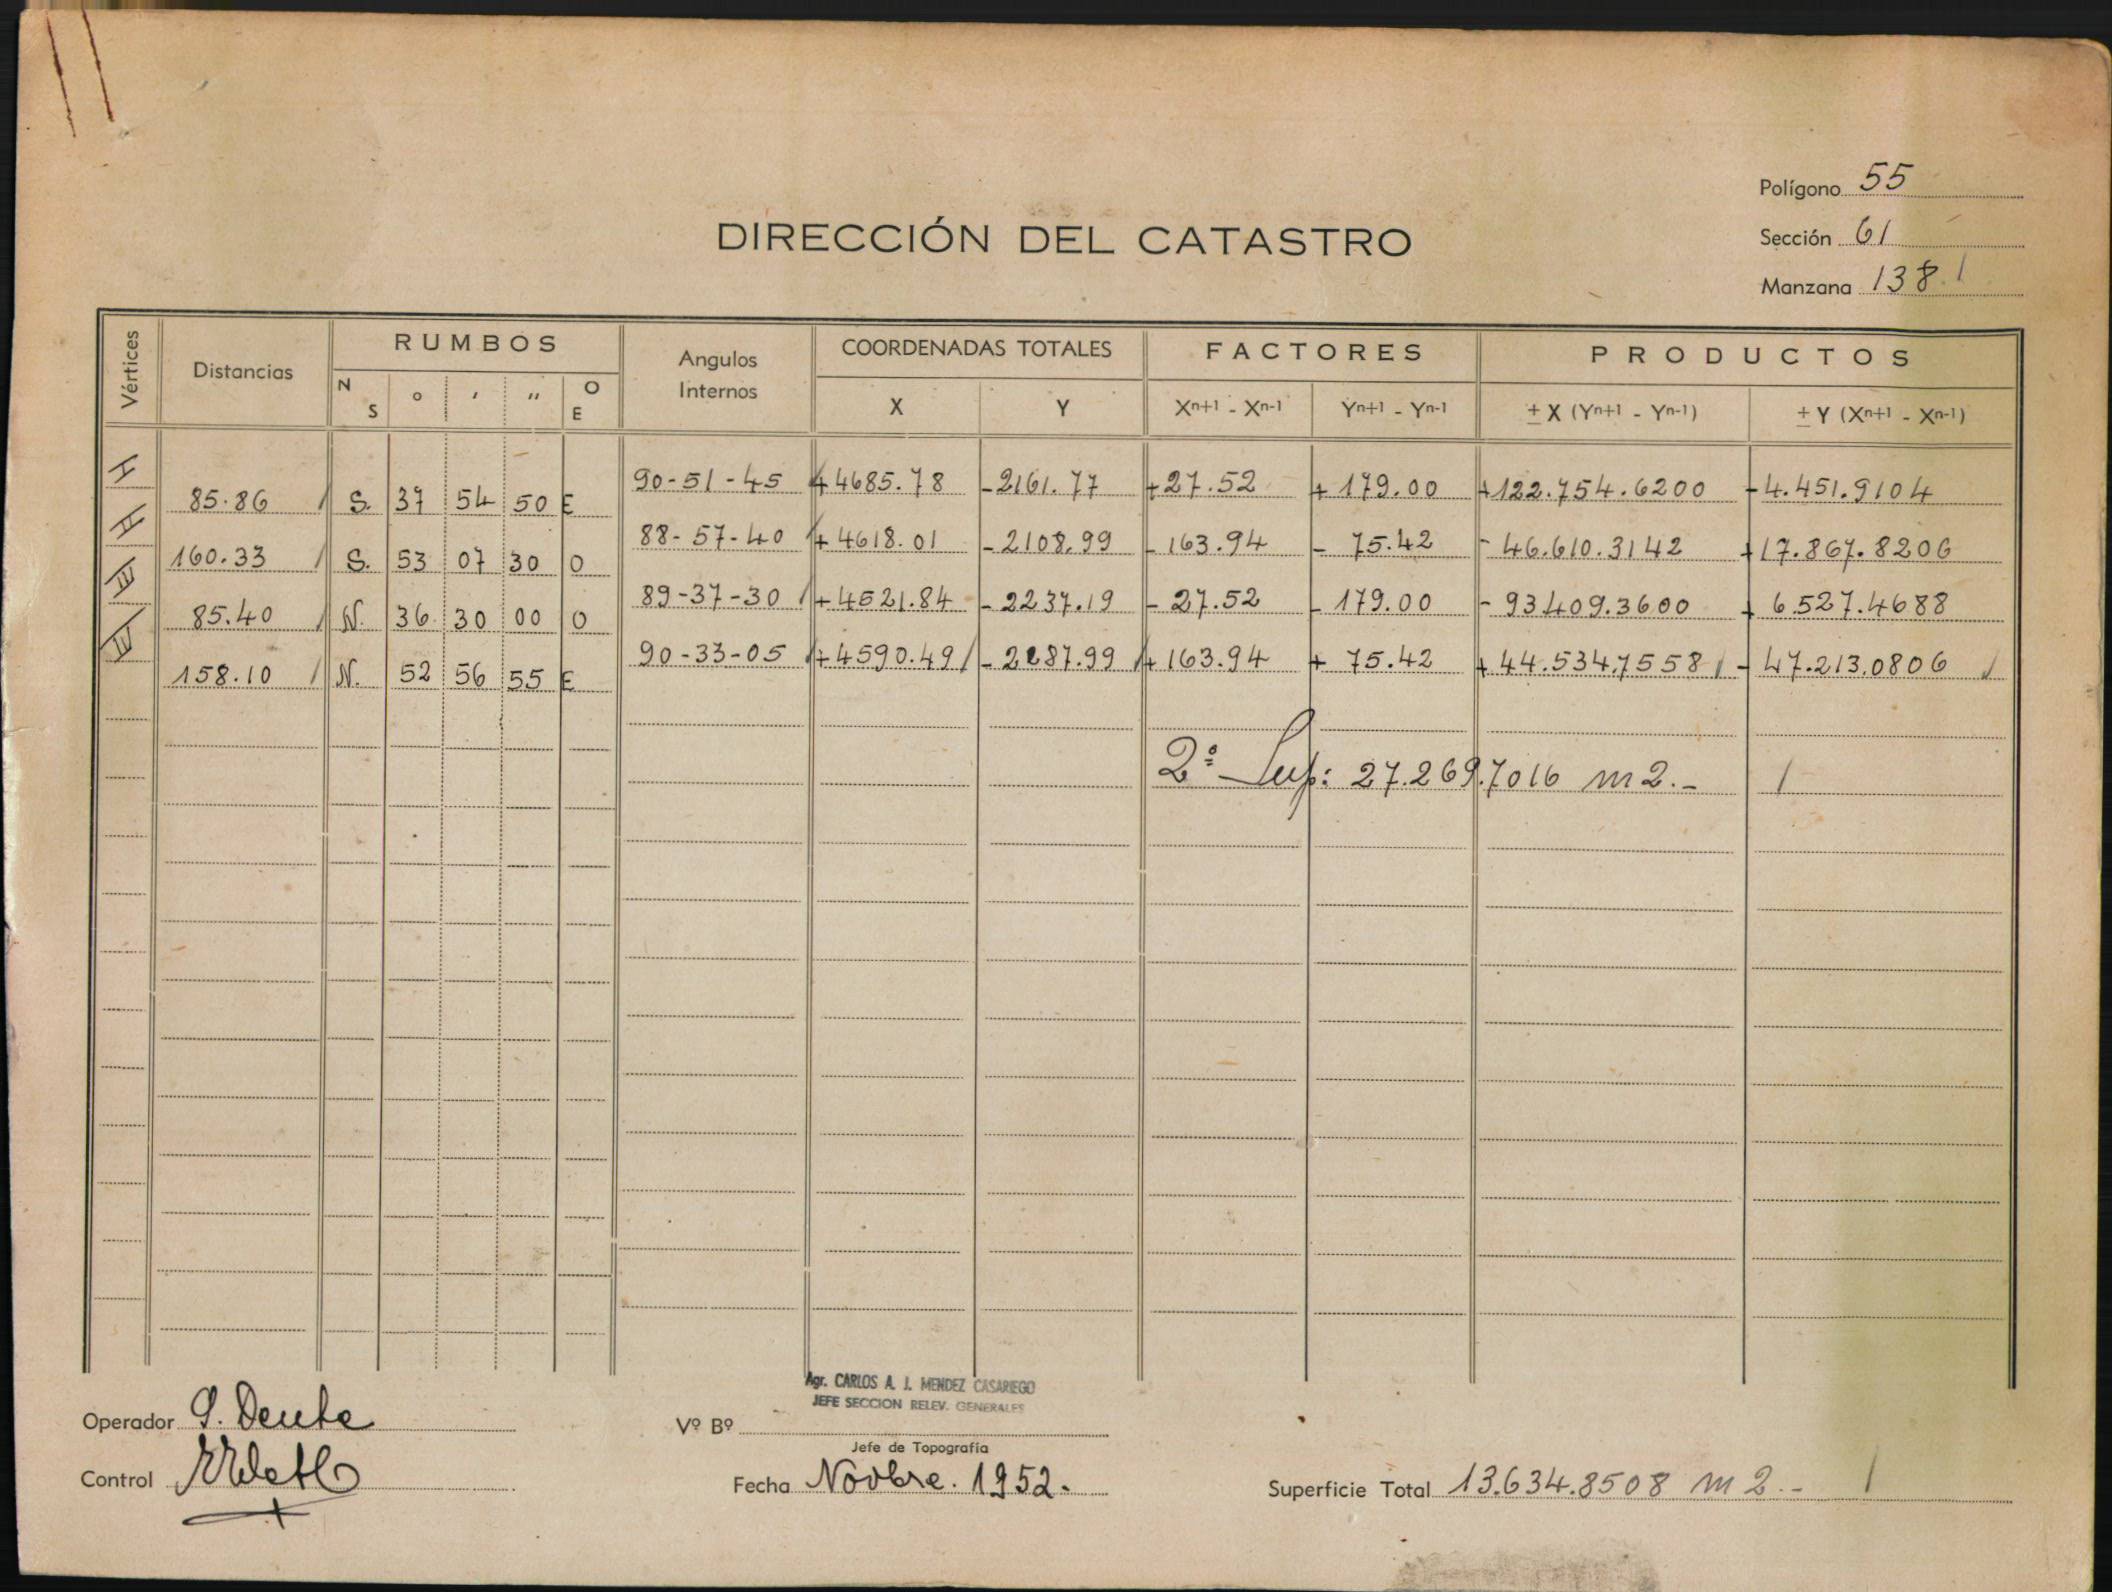 Polígono 55
DIRECCIÓN DEL CATASTRO
Sección 61
Manzana 138
Vértices Distancias RUMBOS Angulos Internos COORDENADAS TOTALES FACTORES PRODUCTOS
N S ° ' " O E X Y Xn+1 - Xn-1 Yn+1 - Yn-1 ± X (Yn+1 - Yn-1) ± Y (Xn+1 - Xn-1)
90-51-45 +4685.78 -2161.77 +27.52 +179.00 +122.754.6200 -4.451.9104
85.86 S. 37 54 50 E
88-57-40 +4618.01 -2108.99 -163.94 -75.42 -46.610.3142 +17.867.8206
160.33 S. 53 07 30 O
89-37-30 +4521.84 -2237.19 -27.52 -179.00 -93409.3600 +6.527.4688
85.40 N. 36 30 00 O
90-33-05 +4590.49 -2287.99 +163.94 +75.42 +44.534.7558 -47.213.0806
158.10 N. 52 56 55 E
2º Sup: 27.269.7016 m2.-
Agr. CARLOS A. J. MENDEZ CASARIEGO
JEFE SECCION RELEV. GENERALES
Operador
Vº Bº
Jefe de Topografía
Control
Fecha Novbre. 1952.
Superficie Total 13.634.8508 m2.-